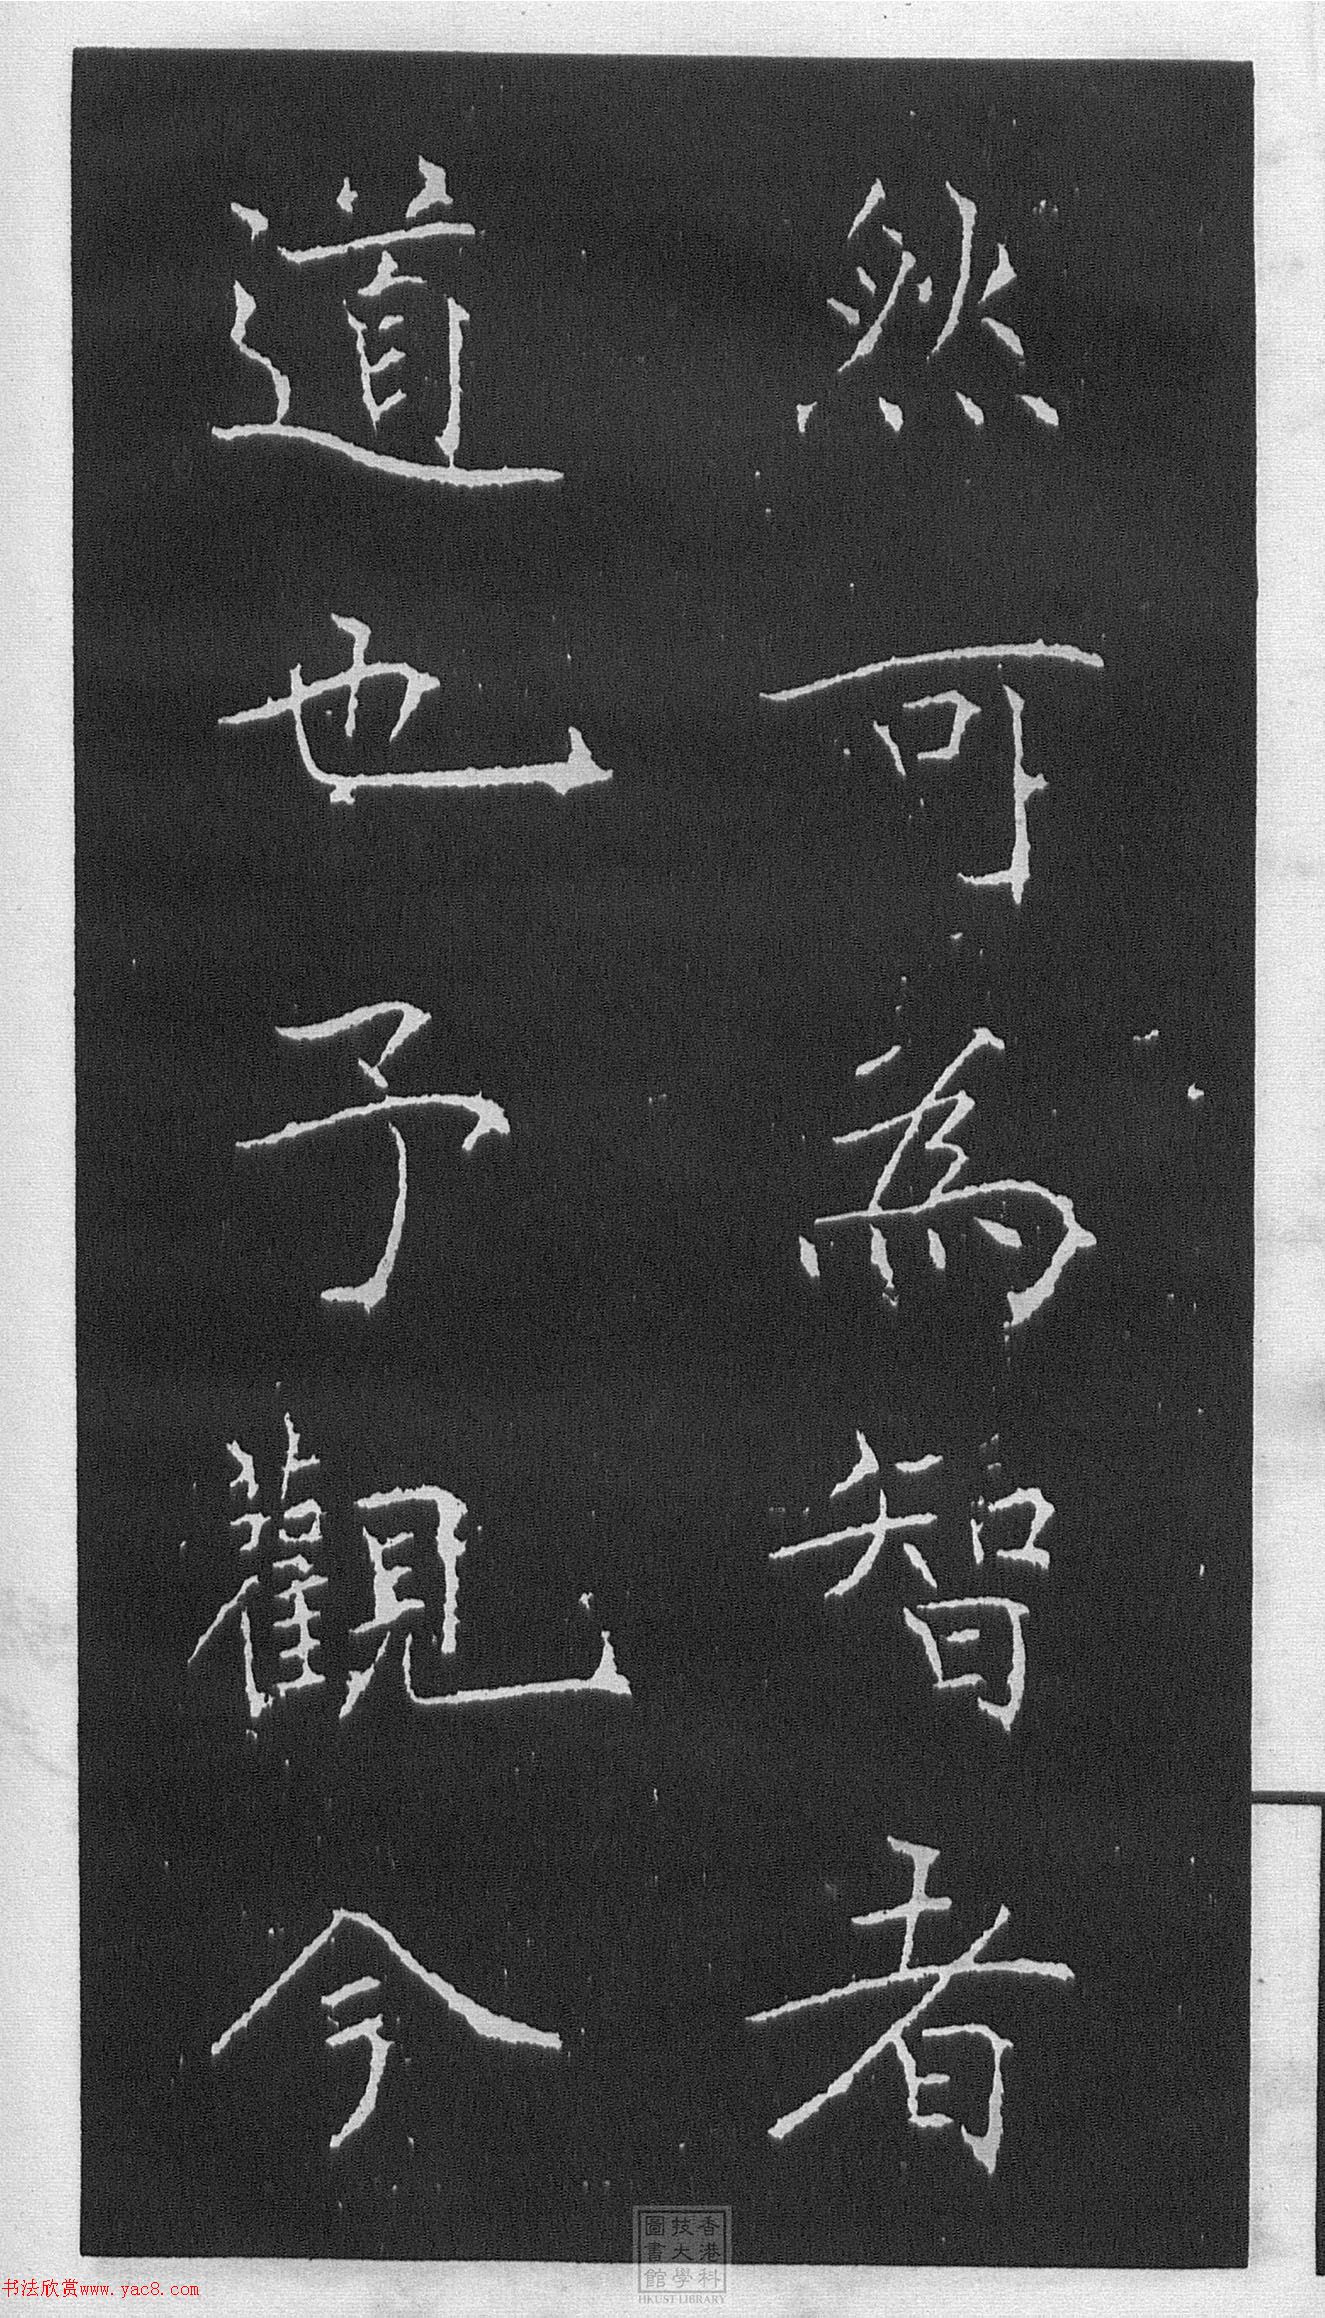 然可為智者
道也予觀今
香港科技大學圖書館
HKUST LIBRARY
书法欣赏www.yac8.com